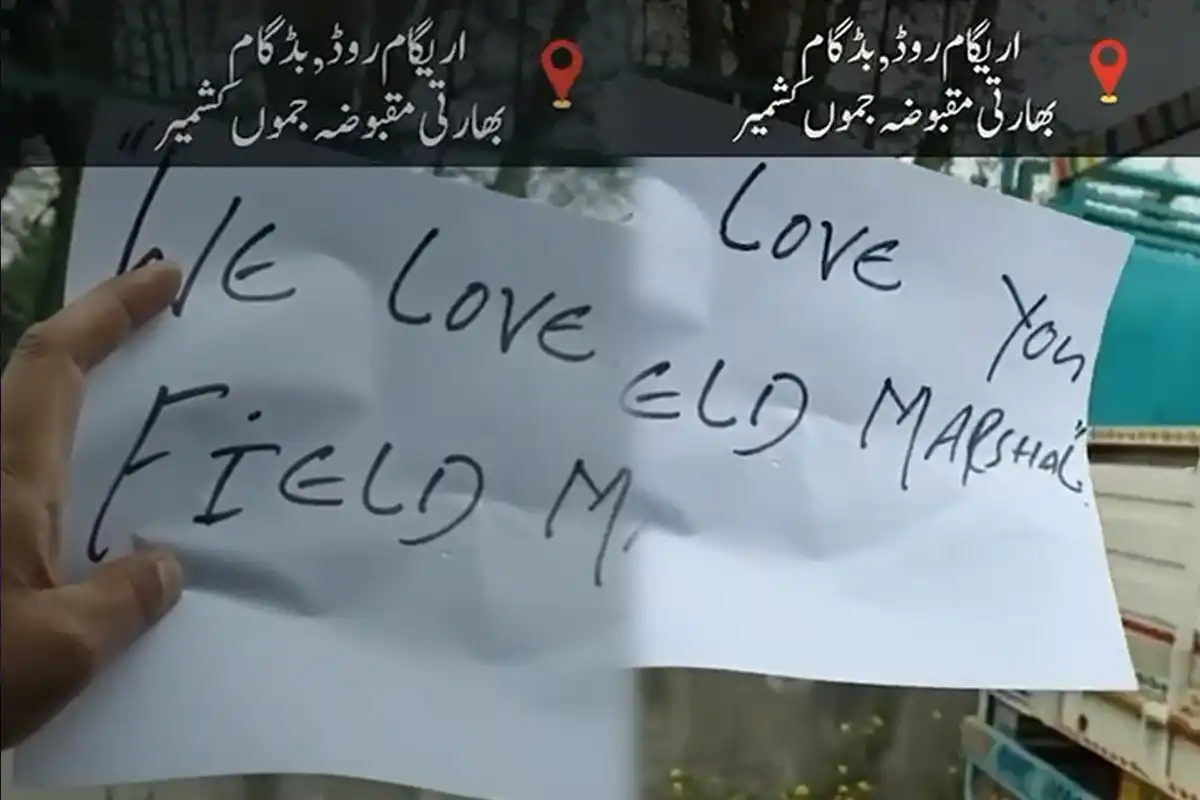 اریگام روڈ,بڈگام
بھارتی مقبوضہ جموں کشمیر
"WE LOVE
FIELD M
اریگام روڈ,بڈگام
بھارتی مقبوضہ جموں کشمیر
LOVE YOU
ELD MARSHAL"